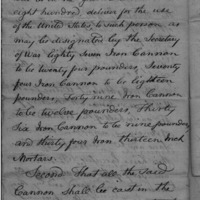 eight hundred, deliver for the use
of the United States to such person as
may be designated by the Secretary
of War eighty seven Iron Cannon
to be twenty four pounders, Seventy
four Iron Cannon to be eighteen
pounders, forty nine Iron Cannon
to be twelve pounders Thirty
Six Iron Cannon to be nine pounders
and thirty four Iron thirteen Inch
Mortars.
Second That all the said
Cannon shall be cast in the